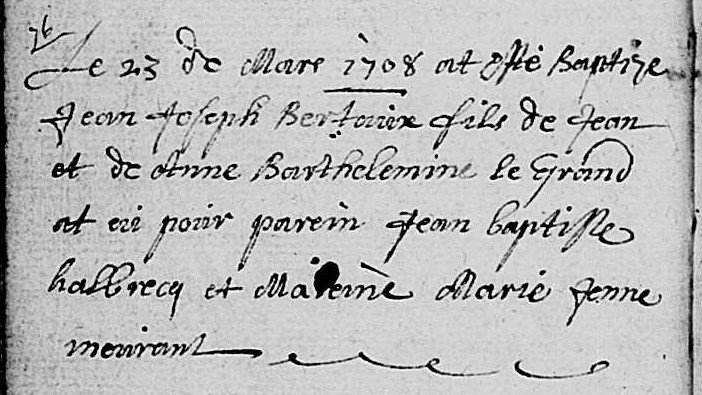 76
Le 23 de Mars 1708 at esté Baptize
Jean Joseph Bertaux fils de Jean
et de Anne Barthelemine le Grand
at eü pour parein Jean baptiste
halbrecq et Mareine Marie Jenne
meurant